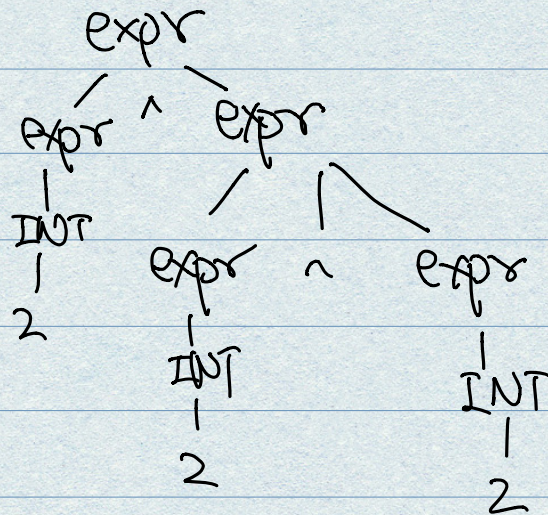 expr
expr ^ expr
INT
expr ^ expr
2
INT INT
2 2